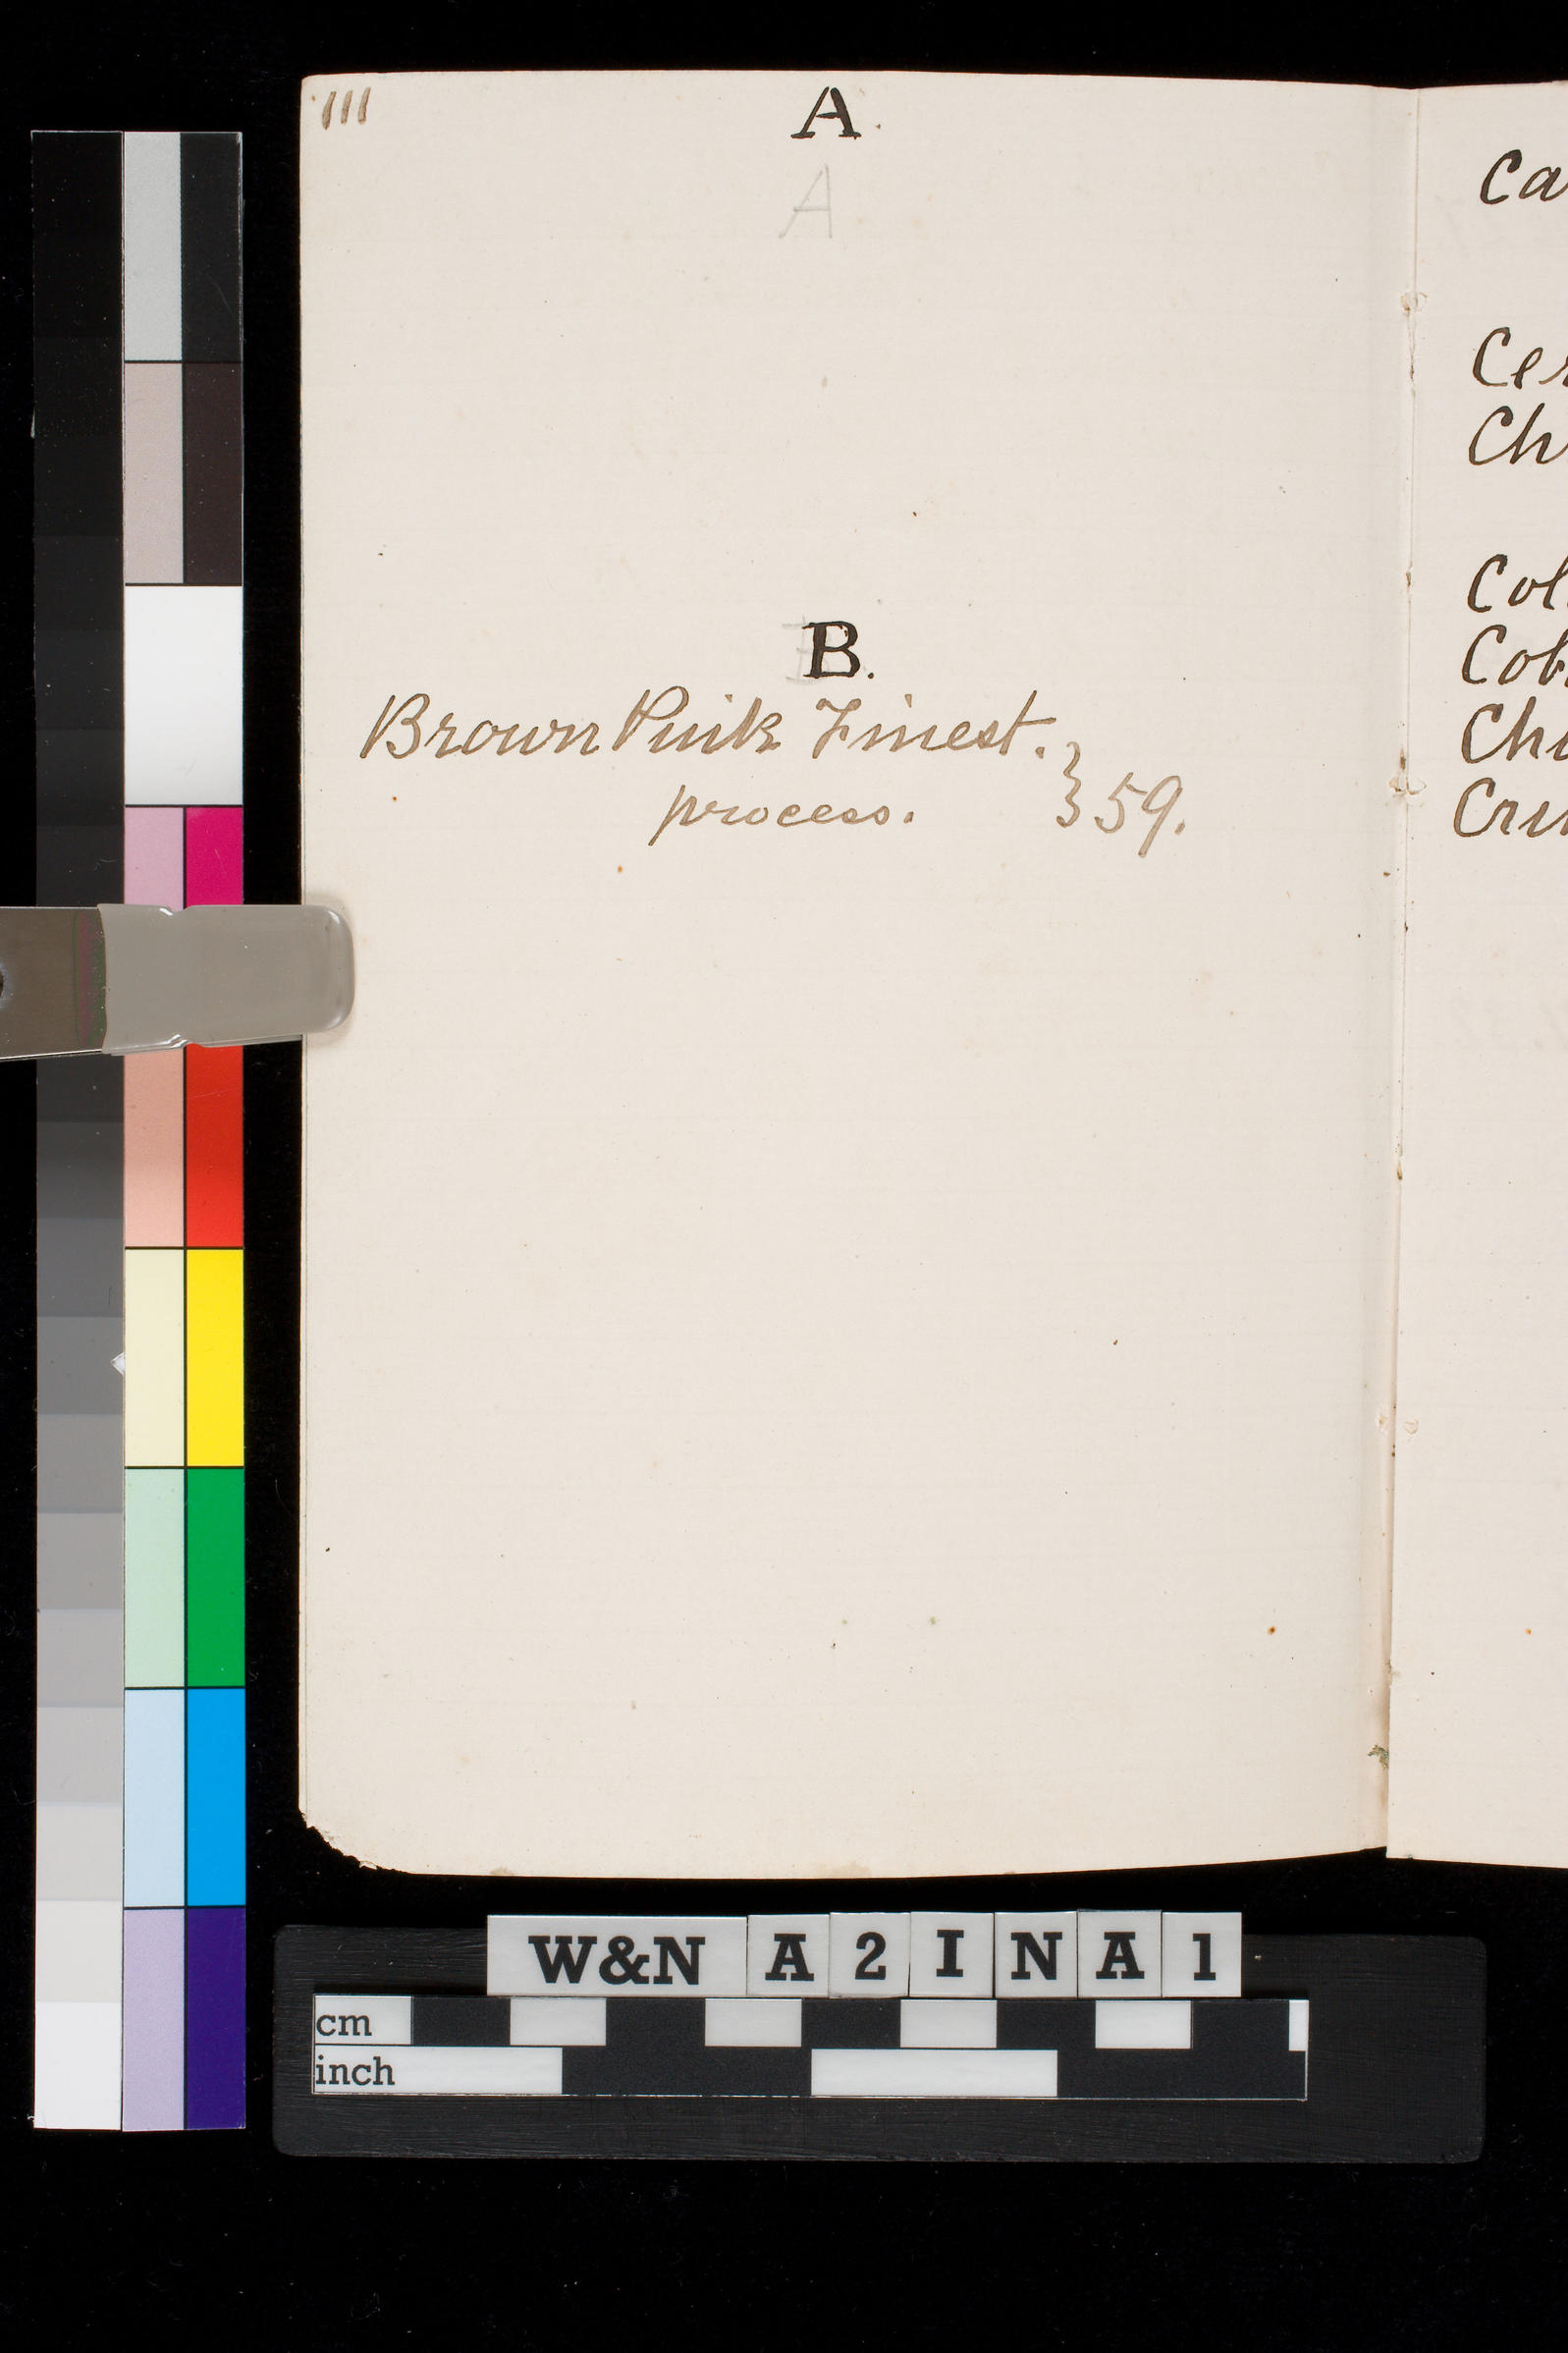 111
A.
A
B.
Brown Pink Finest.
process. } 59.
Ca
Cer
Ch
Col
Cob
Chi
Cru
W&N A 2 I N A 1
cm
inch